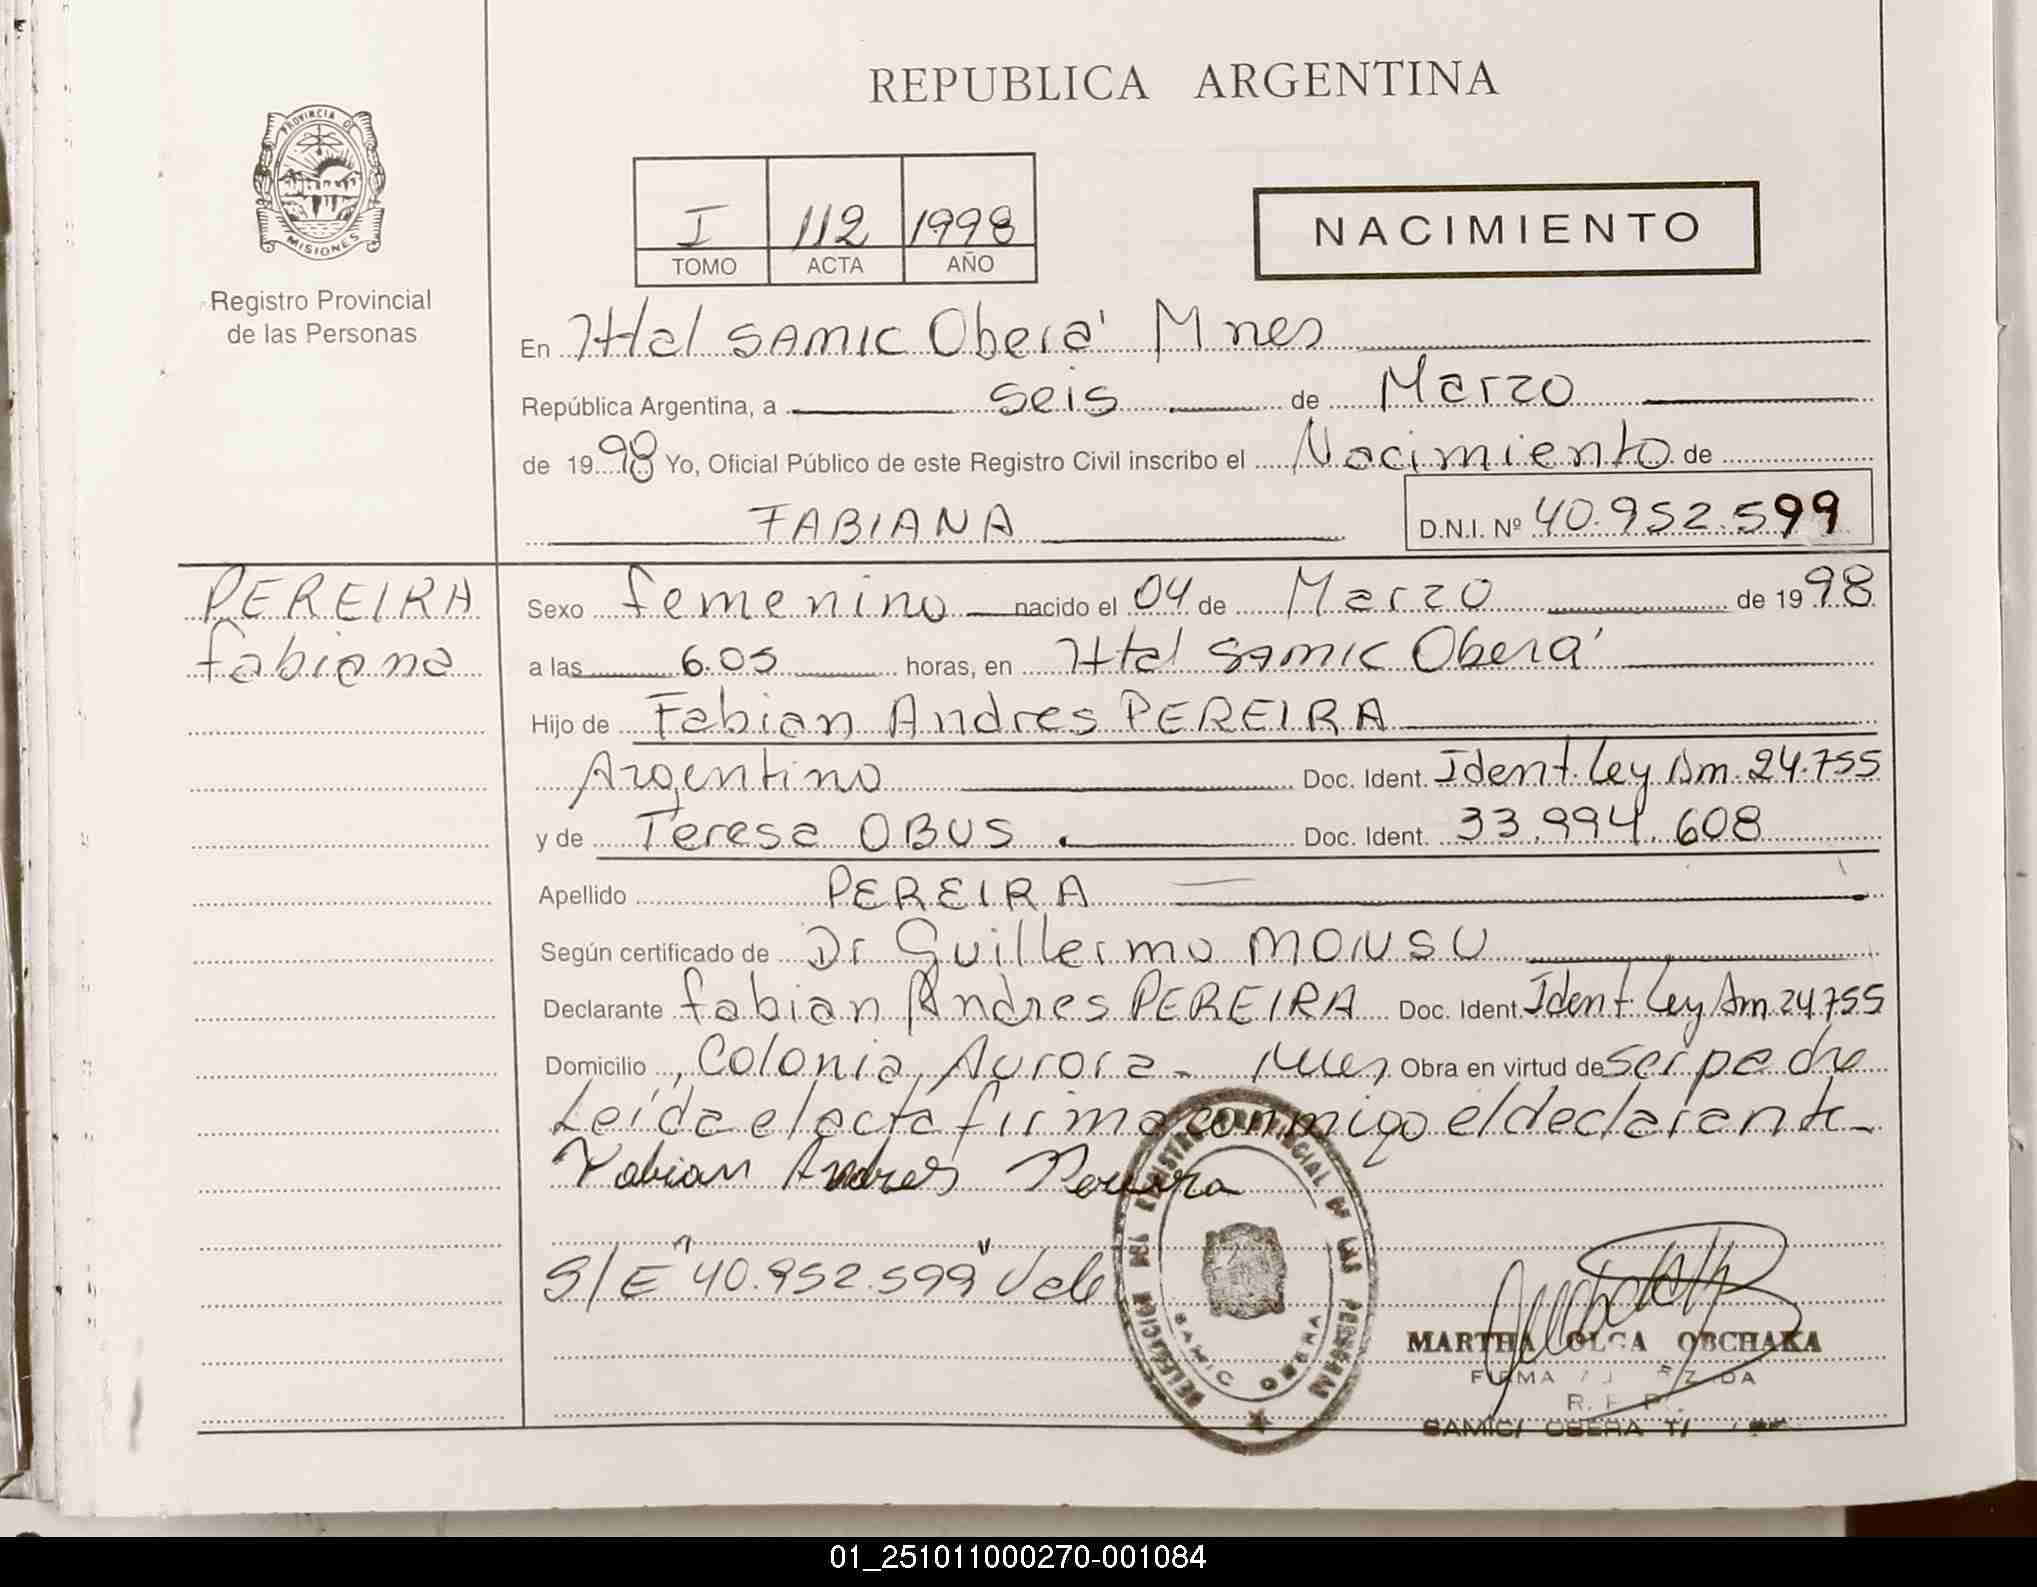 REPUBLICA ARGENTINA
PROVINCIA DE
MISIONES
Registro Provincial
de las Personas
I 112 1998
TOMO ACTA AÑO
NACIMIENTO
En Htal SAMIC Oberá Mnes
República Argentina, a seis de Marzo
de 1998 Yo, Oficial Público de este Registro Civil inscribo el Nacimiento de
FABIANA
D.N.I. Nº 40.952.599
PEREIRA
Fabiana
Sexo femenino nacido el 04 de Marzo de 1998
a las 6.05 horas, en Htal SAMIC Oberá
Hijo de Fabian Andres PEREIRA
Argentino Doc. Ident. Ident. Ley Nm. 24.755
y de Teresa OBUS. Doc. Ident. 33.994.608
Apellido PEREIRA
Según certificado de Dr Guillermo MONSU
Declarante Fabian Andres PEREIRA Doc. Ident. Ident. Ley Nm 24.755
Domicilio Colonia Aurora - Mnes Obra en virtud de ser padre
Leída el acta firma conmigo el declarante-
Fabian Andres Pereira
S/E "40.952.599" Vale
DELEGACION DEL REGISTRO PROVINCIAL DE LAS PERSONAS
SAMIC OBERA
MARTHA OLGA OBCHAKA
FIRMA
R. P. P.
SAMIC/ OBERA
01_251011000270-001084